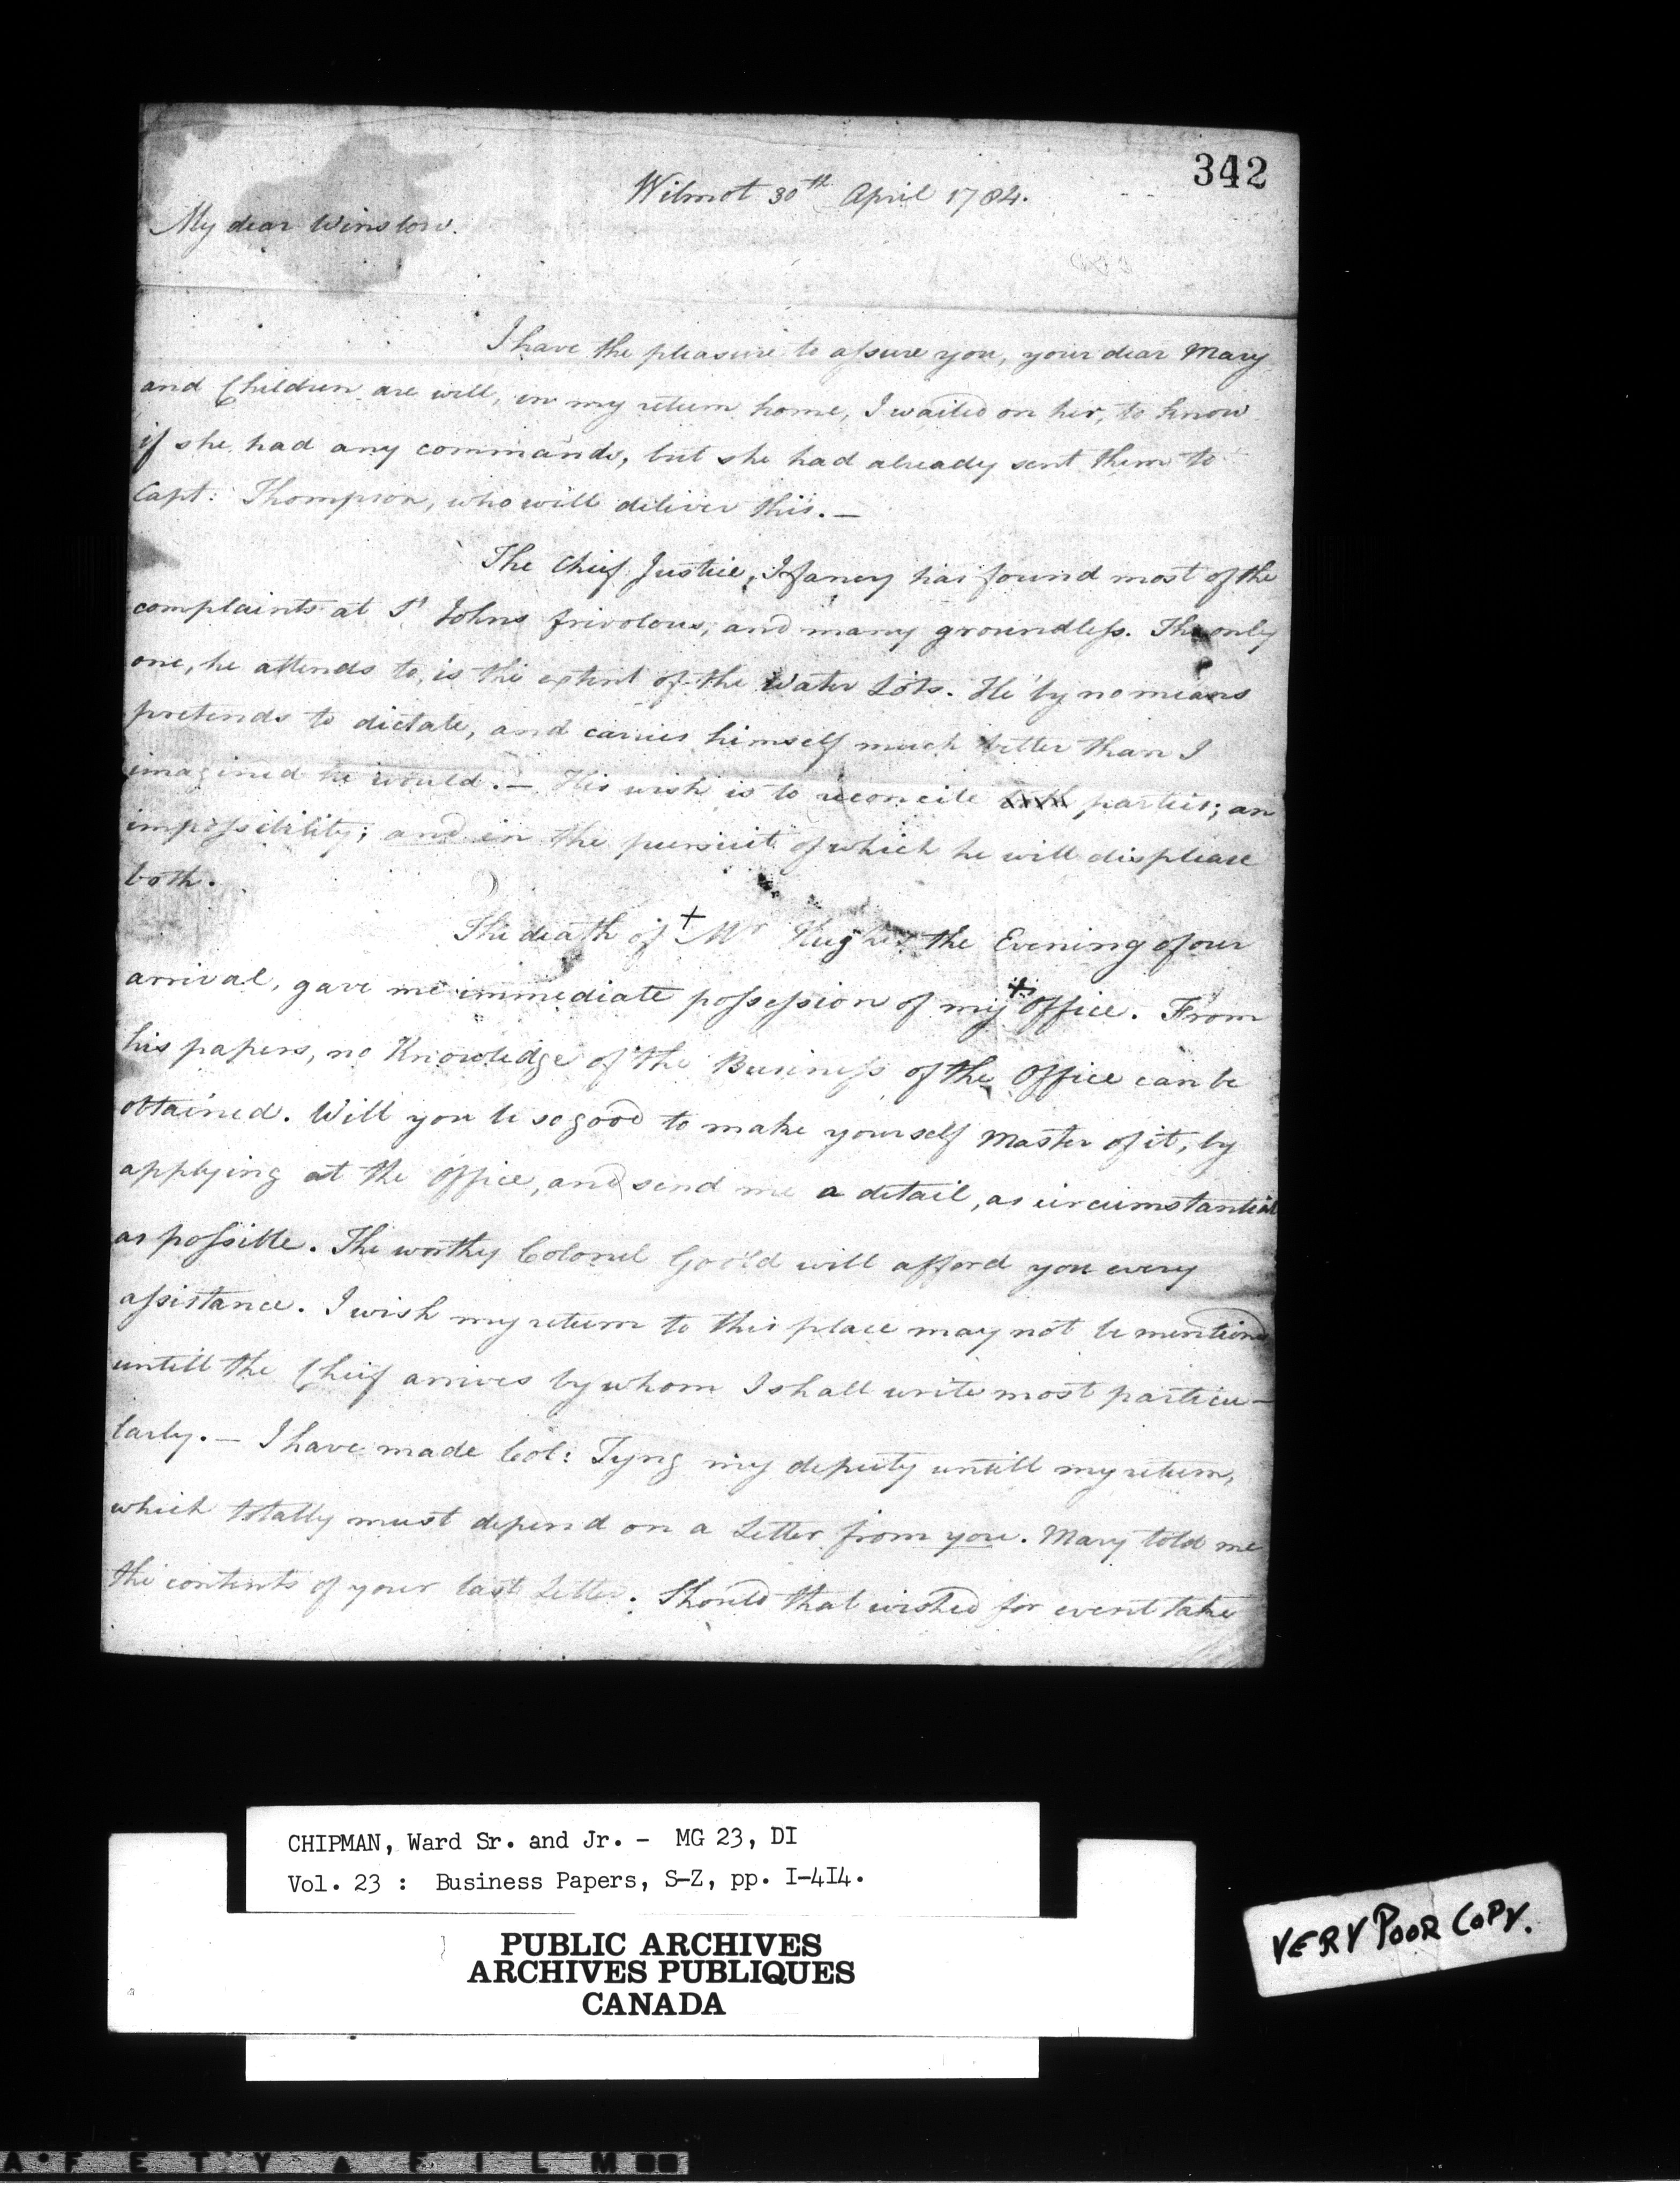 342
Wilmot 30th April 1784.
My dear Winslow.
I have the pleasure to aſsure you, your dear Mary
and Children are well, in my return home, I waited on her, to know
if she had any commands, but she had already sent them to
Capt: Thompson, who will deliver this. —
The Chief Justice, I fancy has found most of the
complaints at St Johns frivolous, and many groundleſs. The only
one, he attends to, is the extent of the Water Lots. He by no means
pretends to dictate, and carries himself much better than I
imagined he would. — His wish is to reconcile both parties; an
impoſsibility; and in the pursuit of which he will displease
both.
The death of + Mr Hughes the Evening of our
arrival, gave me immediate poſseſsion of my + Office. From
his papers, no Knowledge of the Buſineſs of the Office can be
obtained. Will you be so good to make yourself Master of it, by
applying at the Office, and send me a detail, as circumstantial
as poſsible. The worthy Colonel Goold will afford you every
aſsistance. I wish my return to this place may not be mentiond
untill the Cheif arrives by whom I shall write most particu-
larly. — I have made Col: Tyng my deputy untill my return,
which totally must depend on a Letter from you. Mary told me
the contents of your last Letter. Should that wished for event take
CHIPMAN, Ward Sr. and Jr. - MG 23, DI
Vol. 23 : Business Papers, S-Z, pp. I-4I4.
PUBLIC ARCHIVES
ARCHIVES PUBLIQUES
CANADA
VERY POOR COPY.
A F E T Y A F I L M